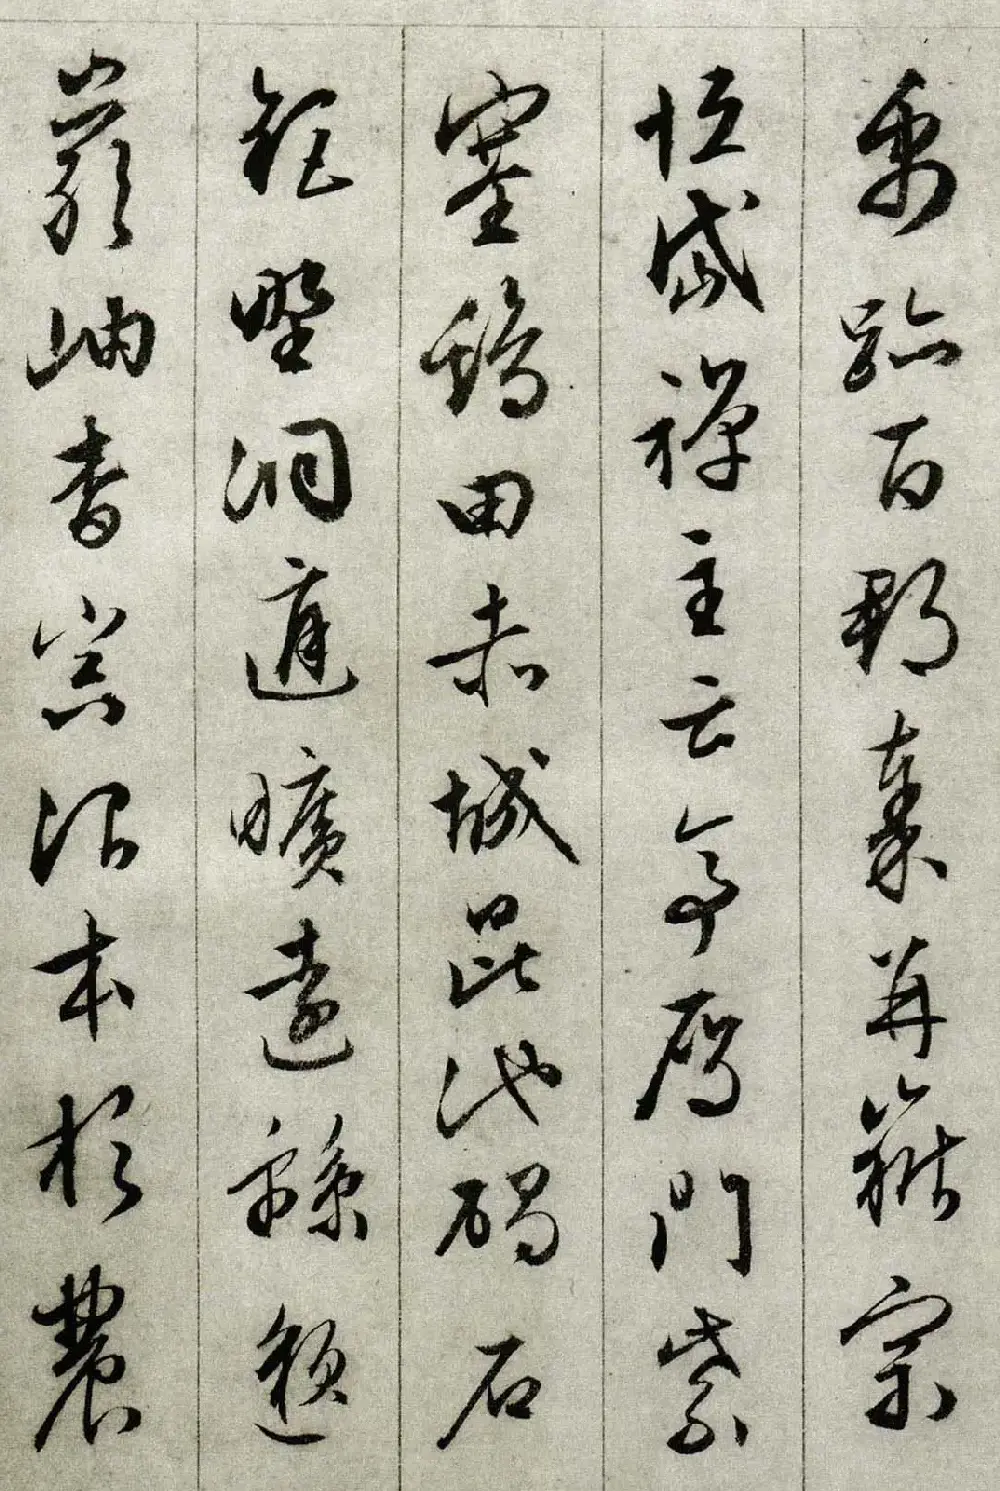 禹跡百郡秦并嶽宗
恒岱禪主云亭雁門紫
塞鷄田赤城昆池碣石
鉅野洞庭曠遠緜邈
巖岫杳冥治本於農